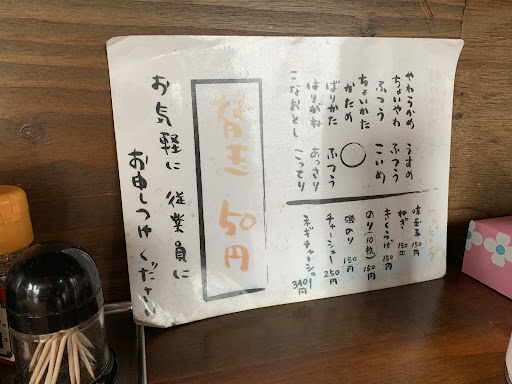 やわらかめ うすめ
ちょいやわ ふつう
ふつう こいめ
ちょいかた
かため ○
ばりかた ふつう
はりがね あっさり
こなおとし こってり
味玉子 150
ねぎ 150
きくらげ 150
のり(10枚) 150円
磯のり 150円
チャーシュー 250円
ネギチャーシュー 340円
替玉 50円
お気軽に従業員に
お申しつけください